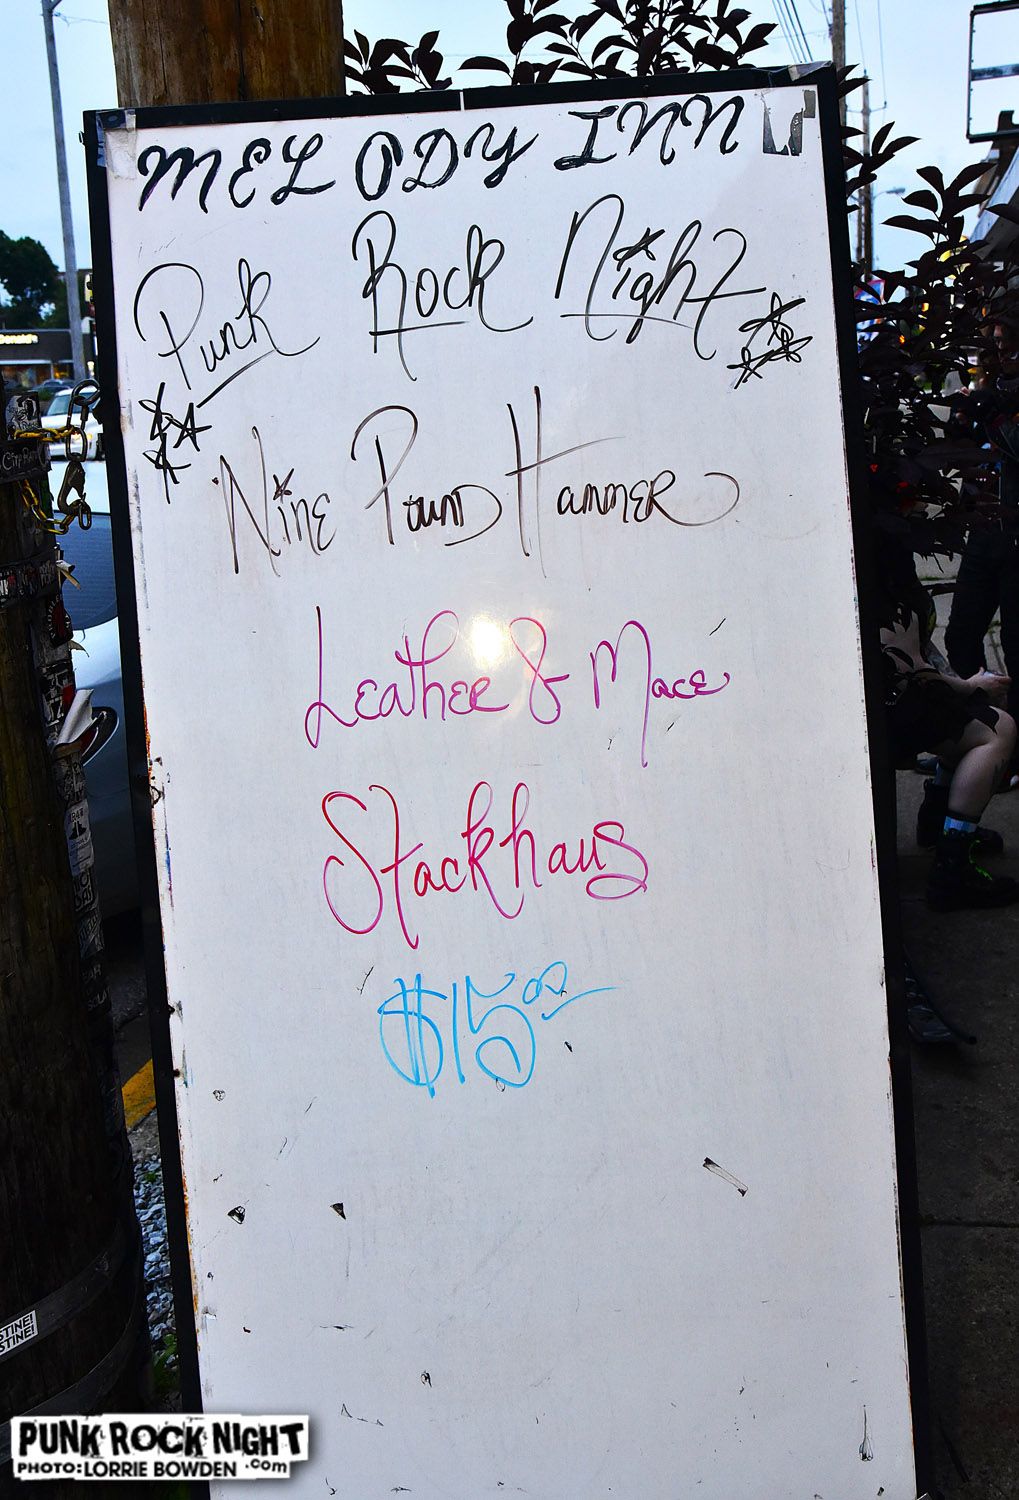 MELODY INN
Punk Rock Night
Nine Pound Hammer
Leather & Mace
Stackhaus
$15.00
STINE!
STINE!
PUNK ROCK NIGHT
PHOTO:LORRIE BOWDEN .com